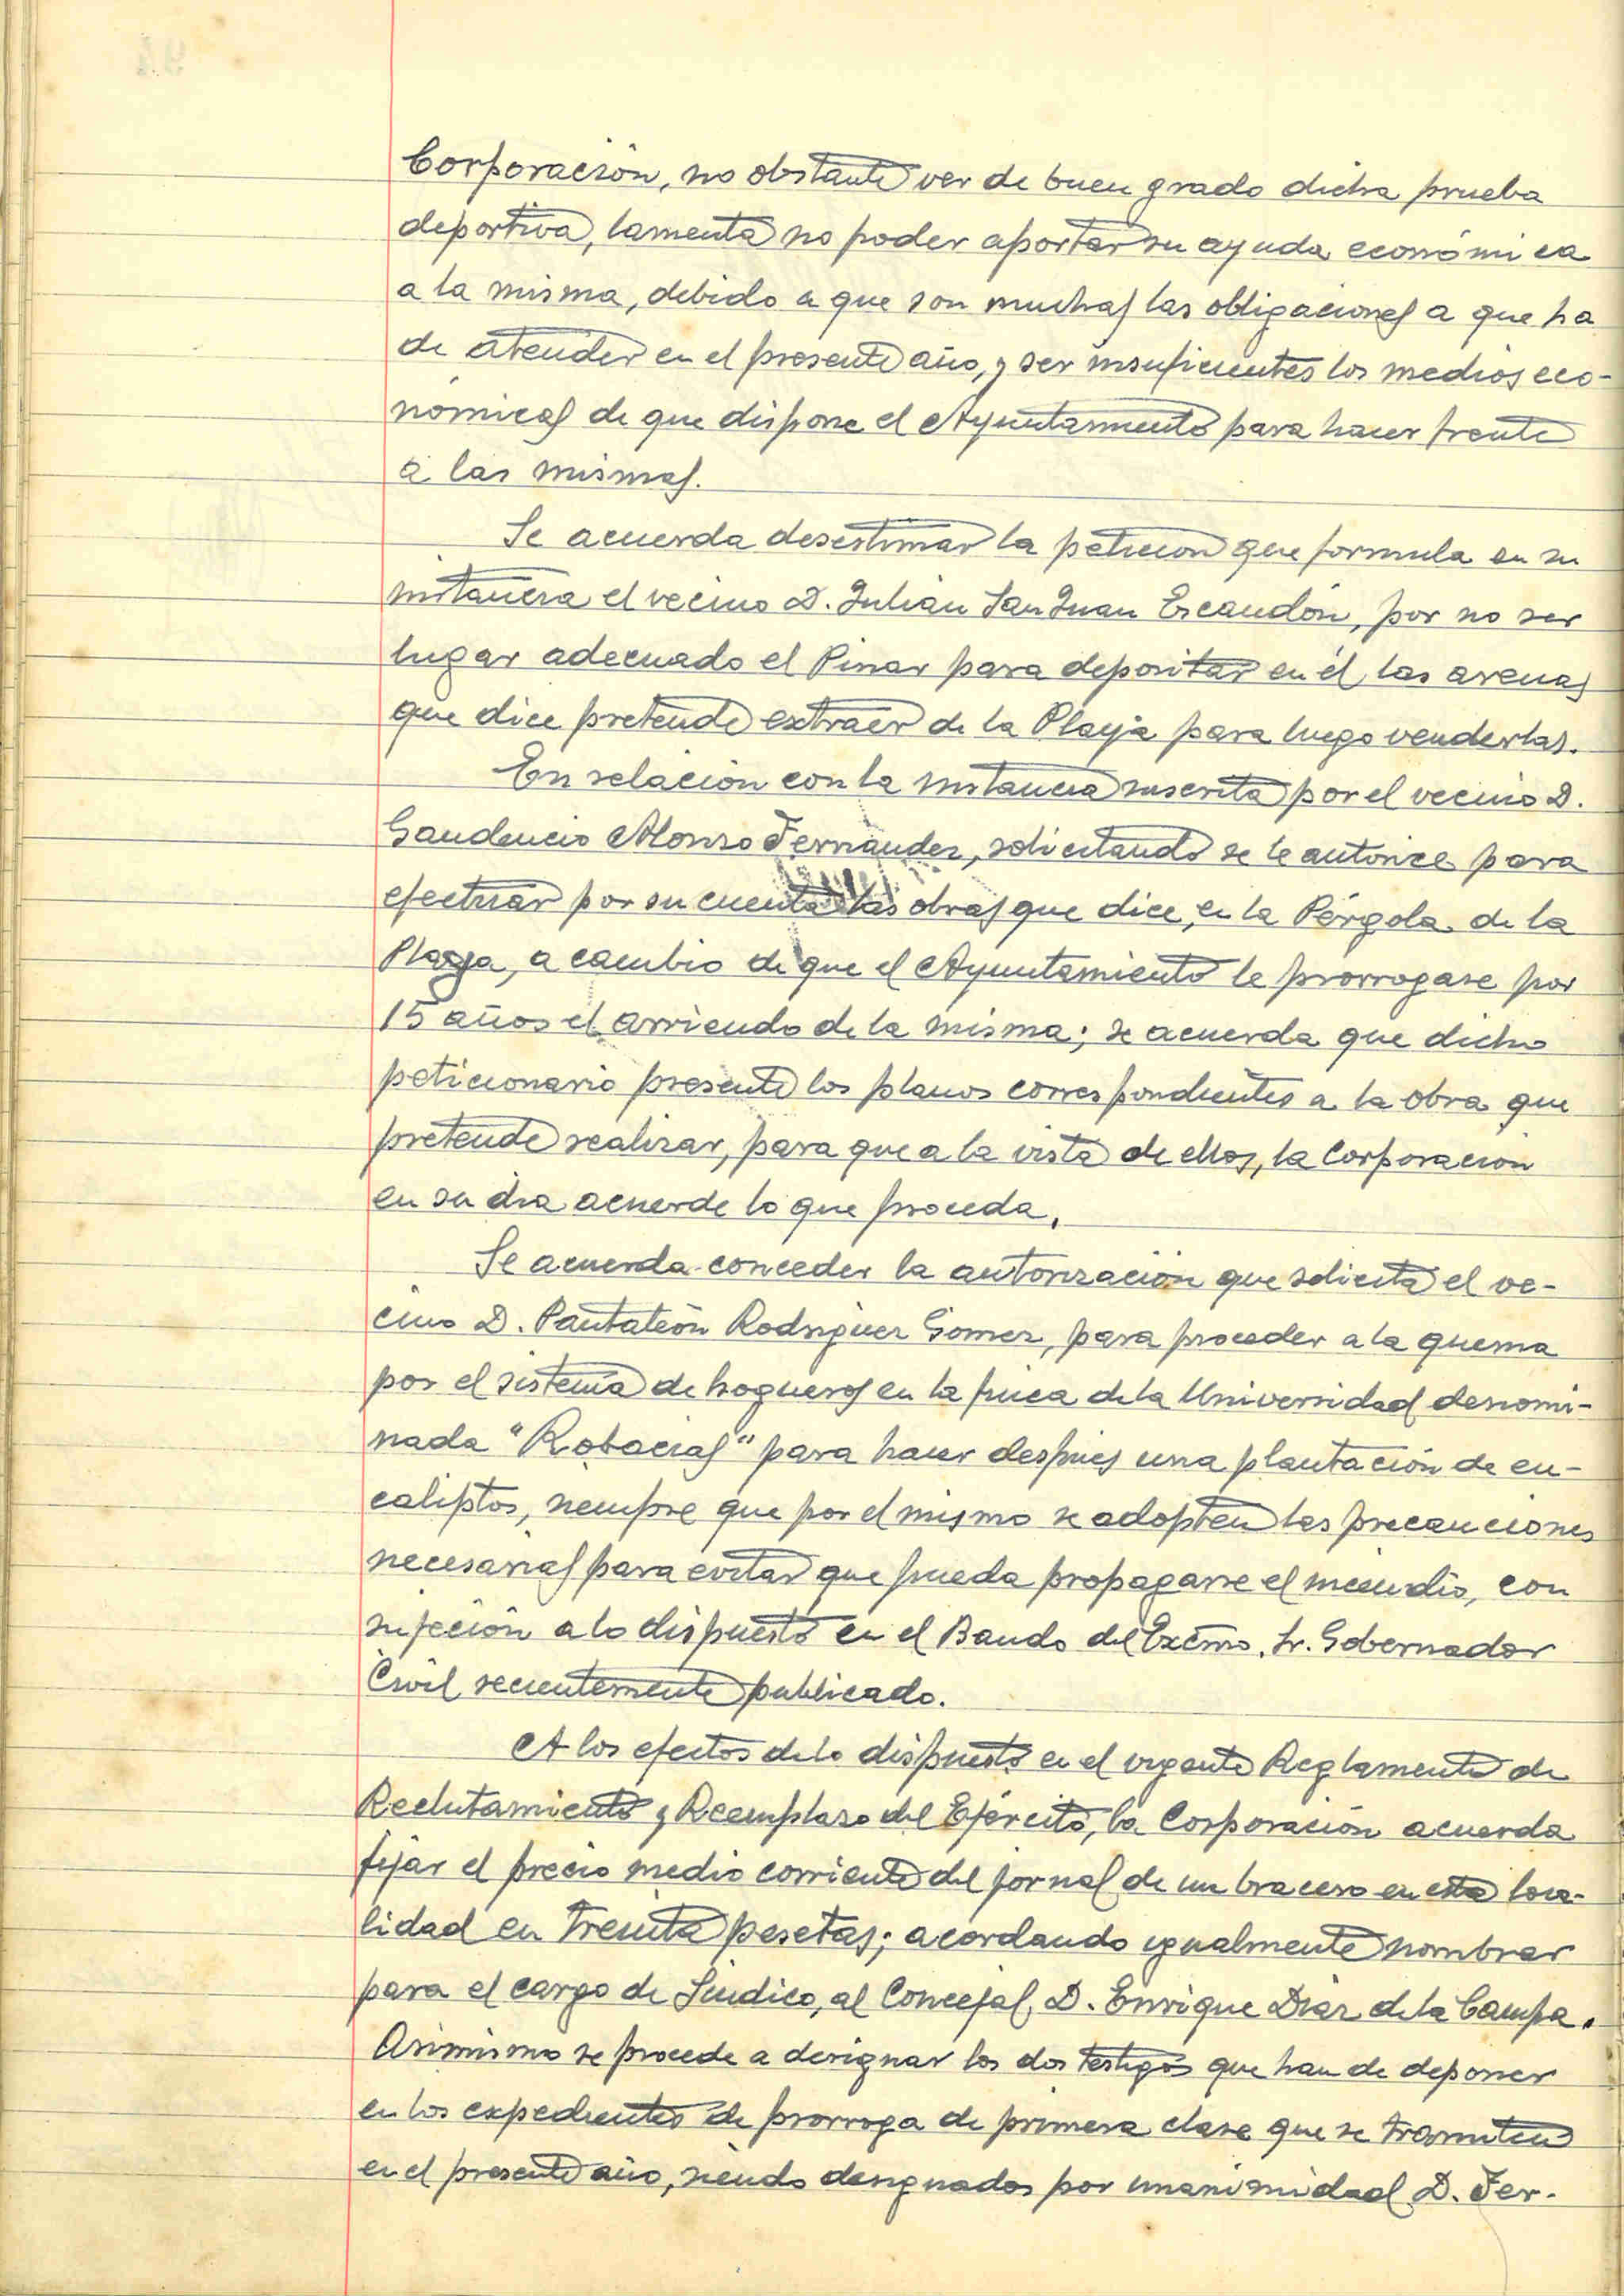 Corporación, no obstante ver de buen grado dicha prueba
deportiva, lamenta no poder aportar su ayuda económica
a la misma, debido a que son muchas las obligaciones a que ha
de atender en el presente año, y ser insuficientes los medios eco-
nómicos de que dispone el Ayuntamiento para hacer frente
a las mismas.
Se acuerda desestimar la petición que formula en su
instancia el vecino D. Julián San Juan Escandón, por no ser
lugar adecuado el Pinar para depositar en él las arenas
que dice pretende extraer de la Playa para luego venderlas.
En relación con la instancia suscrita por el vecino D.
Gaudencio Alonso Fernández, solicitando se le autorice para
efectuar por su cuenta las obras que dice, en la Pérgola de la
Playa, a cambio de que el Ayuntamiento le prorrogase por
15 años el arriendo de la misma; se acuerda que dicho
peticionario presente los planos correspondientes a la obra que
pretende realizar, para que a la vista de ellos, la Corporación
en su día acuerde lo que proceda.
Se acuerda conceder la autorización que solicita el ve-
cino D. Pantaleón Rodríguez Gómez, para proceder a la quema
por el sistema de hogueras en la finca de la Universidad denomi-
nada "Robacias" para hacer después una plantación de eu-
caliptos, siempre que por el mismo se adopten las precauciones
necesarias para evitar que pueda propagarse el incendio, con
sujeción a lo dispuesto en el Bando del Excmo. Sr. Gobernador
Civil recientemente publicado.
A los efectos de lo dispuesto en el vigente Reglamento de
Reclutamiento y Reemplazo del Ejército, la Corporación acuerda
fijar el precio medio corriente del jornal de un bracero en esta loca-
lidad en treinta pesetas; acordando igualmente nombrar
para el cargo de Síndico, al Concejal, D. Enrique Díaz de la Campa.
Asimismo se procede a designar los dos testigos que han de deponer
en los expedientes de prorroga de primera clase que se tramiten
en el presente año, siendo designados por unanimidad D. Fer-